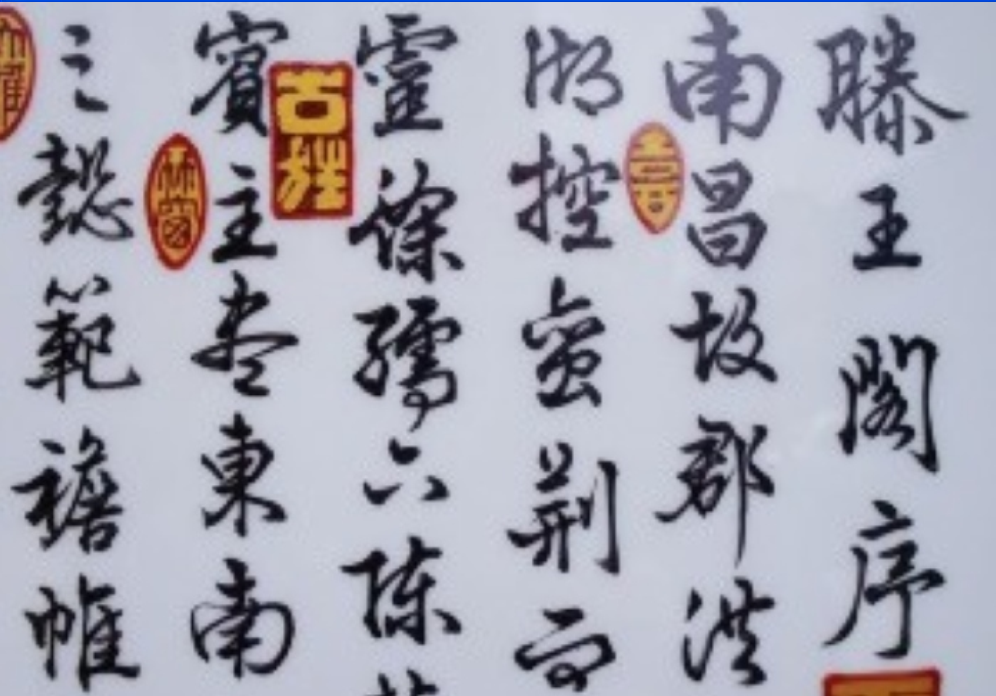 滕王閣序
南昌故郡洪
湖控蛮荆而
靈徐孺下陈
賓主尽東南
之懿範襜帷
吉祥